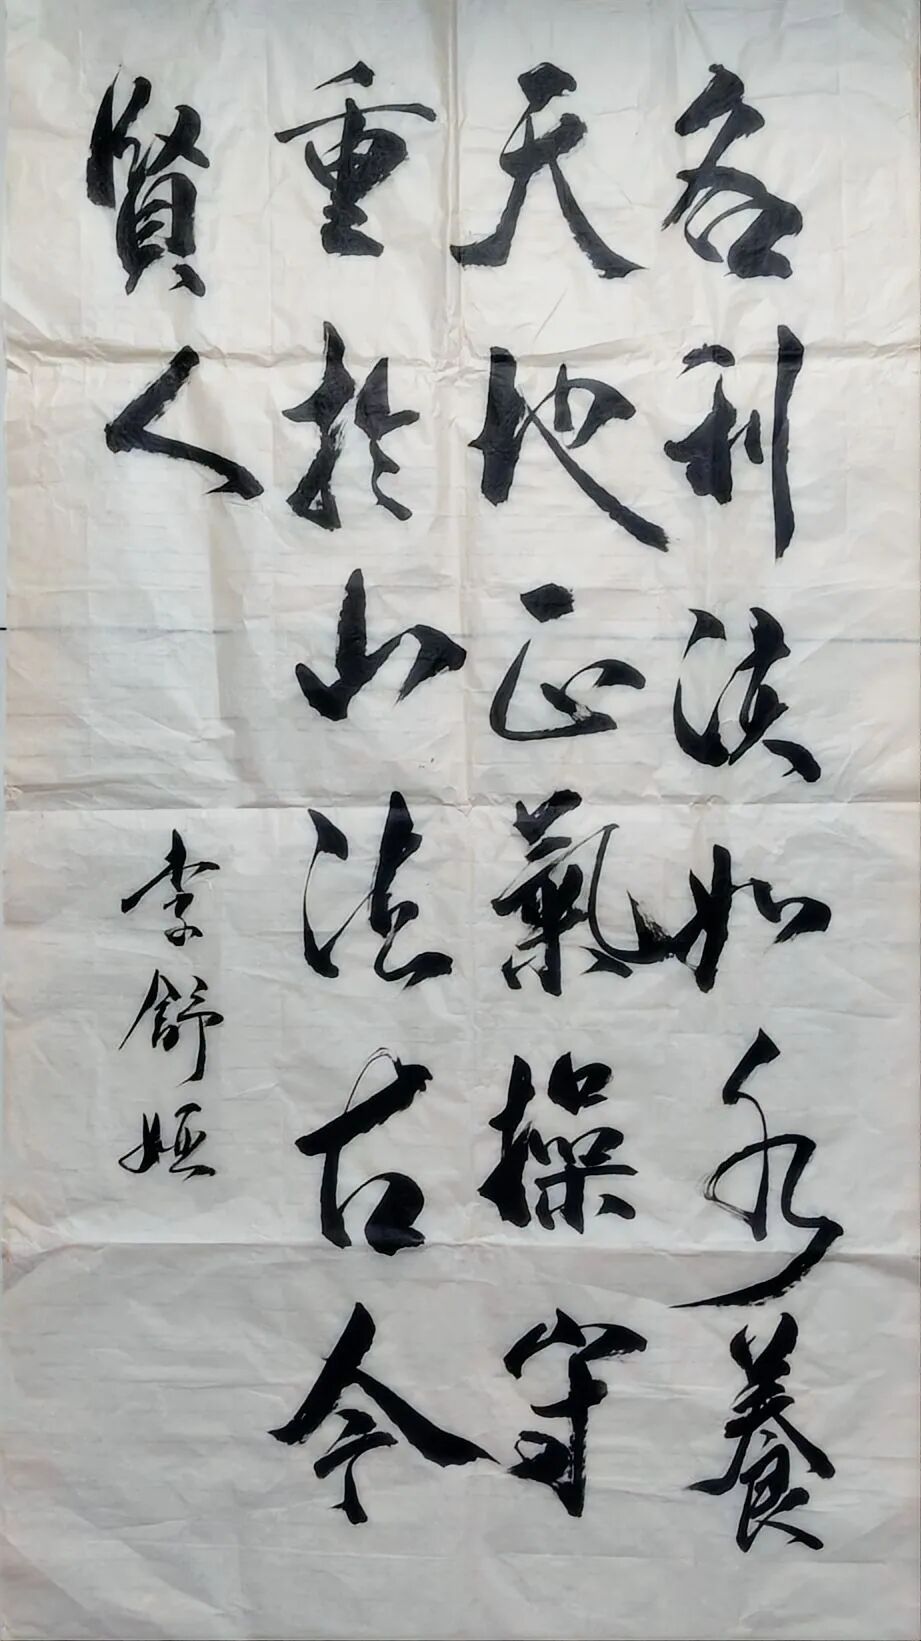 名利淡如水養
天地正氣操守
重於山法古今
賢人
李舒娅